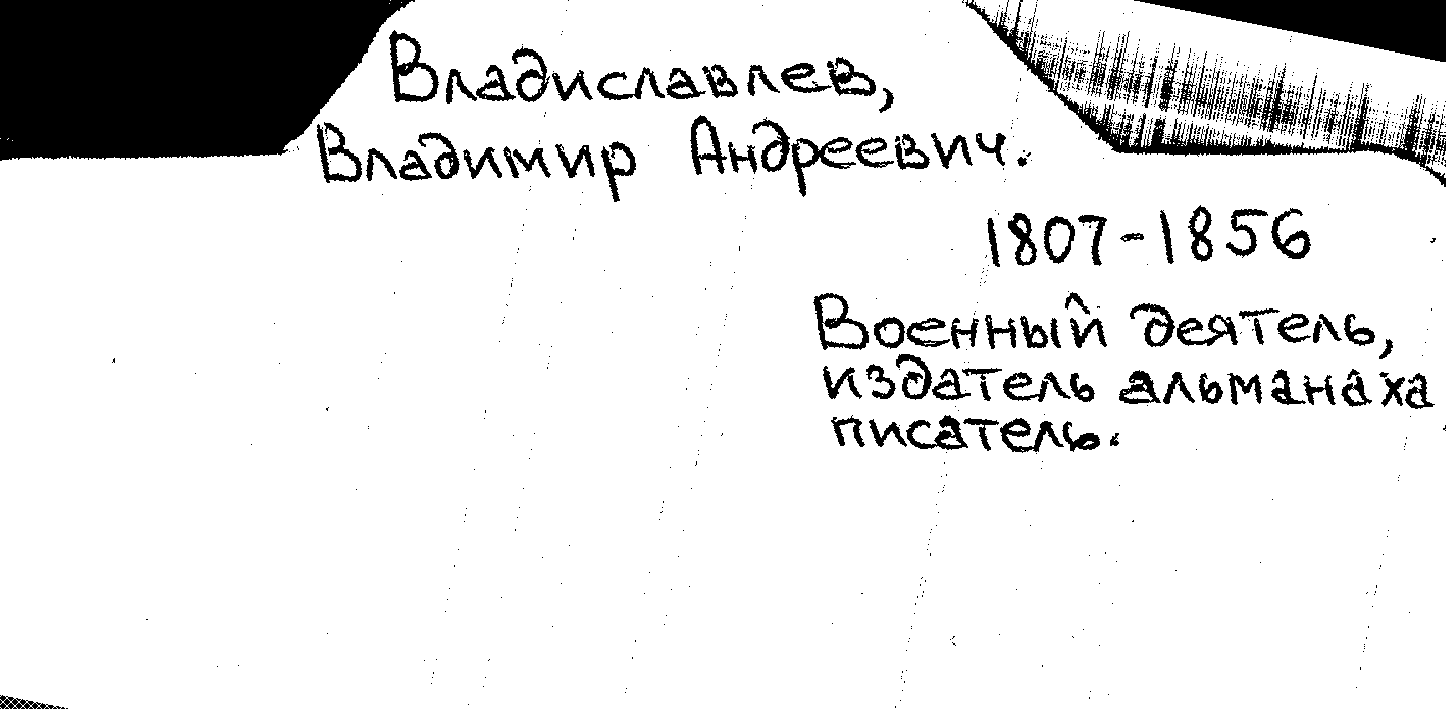 Владиславлев,
Владимир Андреевич.
1807-1856
Военный деятель,
издатель альманаха
писатель.